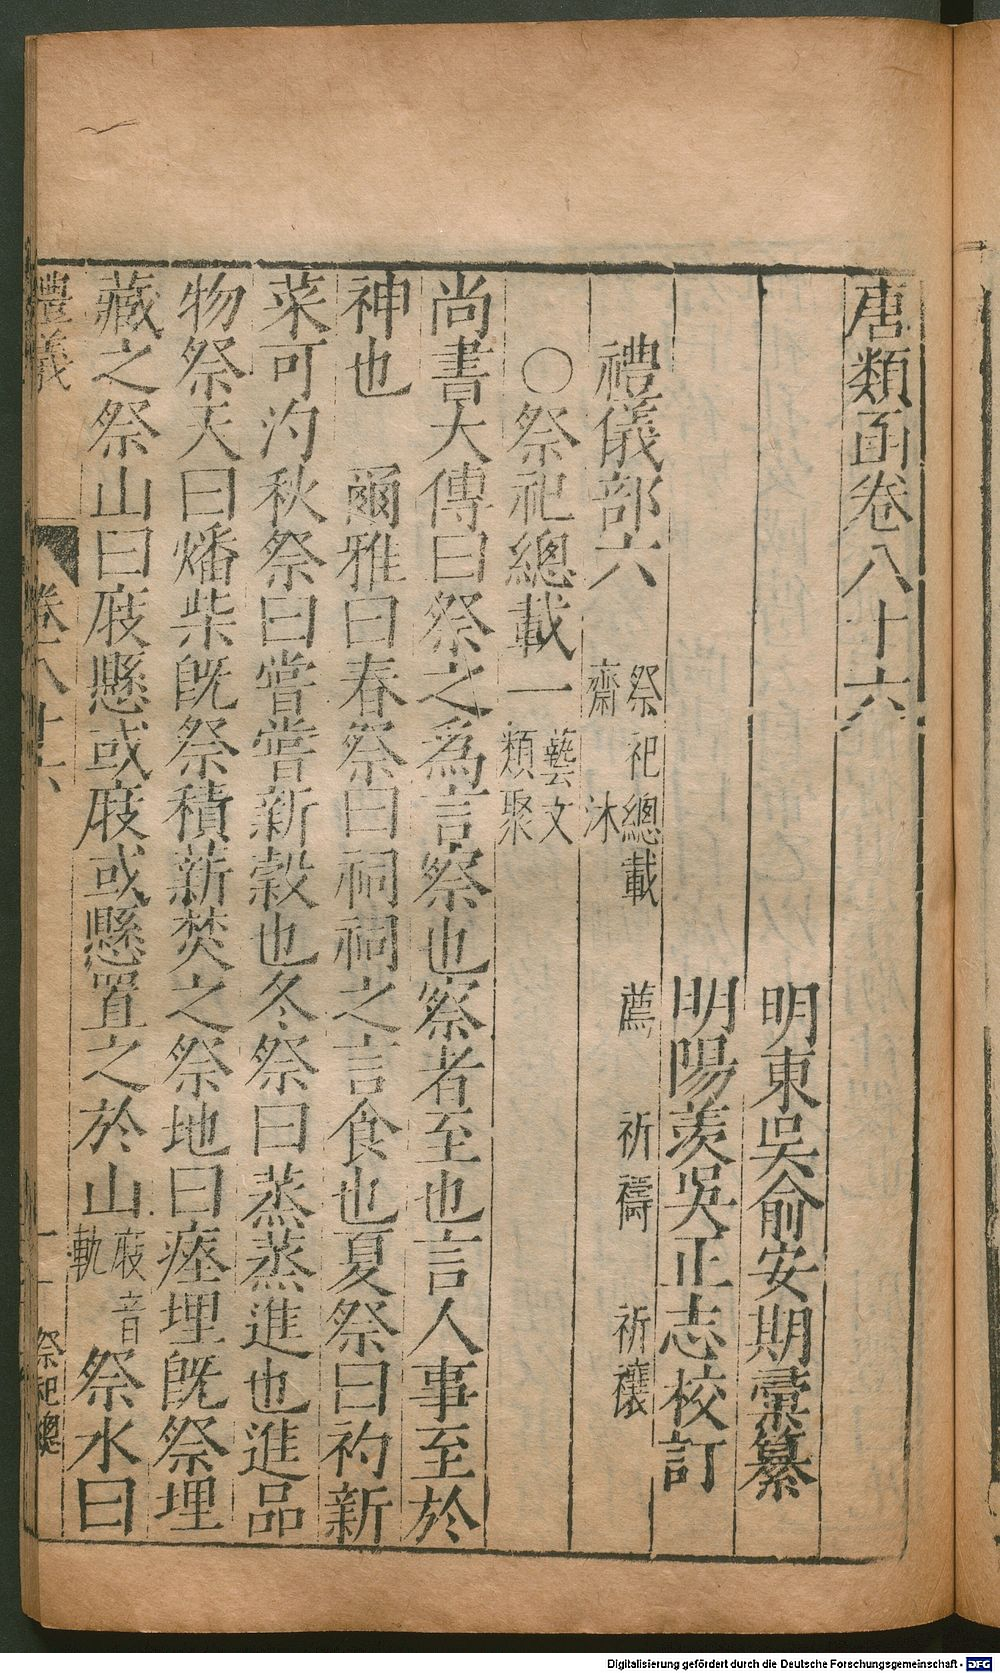 唐類函卷八十六
明東吳俞安期彙纂
明陽羨吳正志校訂
禮儀部六 祭祀總載 薦 祈禱 祈禳
齋 沐
○祭祀總載一 藝文
類聚
尚書大傳曰祭之爲言察也察者至也言人事至於
神也 爾雅曰春祭曰祠祠之言食也夏祭曰礿新
菜可汋秋祭曰嘗嘗新穀也冬祭曰蒸蒸進也進品
物祭天曰燔柴旣祭積薪焚之祭地曰瘞埋旣祭埋
藏之祭山曰庪懸或庪或懸置之於山 庪音
軌 祭水曰
禮義 卷八十六 一 祭祀總
Digitalisierung gefördert durch die Deutsche Forschungsgemeinschaft - DFG